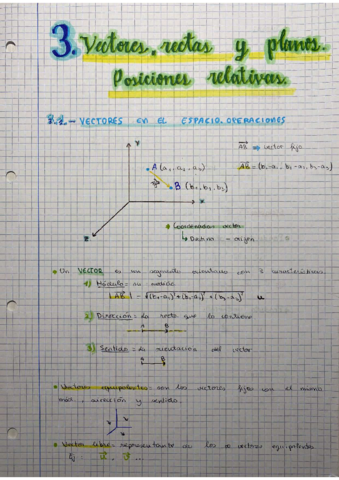 3. Vectores, rectas y planos.
Posiciones relativas.
VECTORES EN EL ESPACIO. OPERACIONES
Y
A (a₁, a₂, a₃)
B (b₁, b₂, b₃)
X
Z
AB ⇒ vector fijo
AB = (b₁-a₁, b₂-a₂, b₃-a₃)
Coordenadas vector
↳ Destino - origen
• Un VECTOR es un segmento orientado con 3 características:
1) Módulo: su medida
|AB| = √(b₁-a₁)²+(b₂-a₂)²+(b₃-a₃)² u
2) Dirección: La recta que lo contiene
A B
3) Sentido: La orientación del vector
A B
• Vectores equipolentes: son los vectores fijos con el mismo
mod., dirección y sentido.
• Vector libre: representante de los vectores equipolentes
Ej